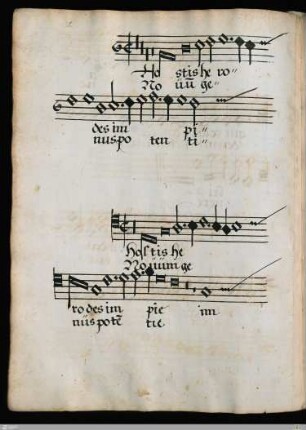 Ho stis he ro
No uū ge
des im pi
nus po ten ti
Hos tis he
No uum ge
ro des im pie im
nus potē tie.